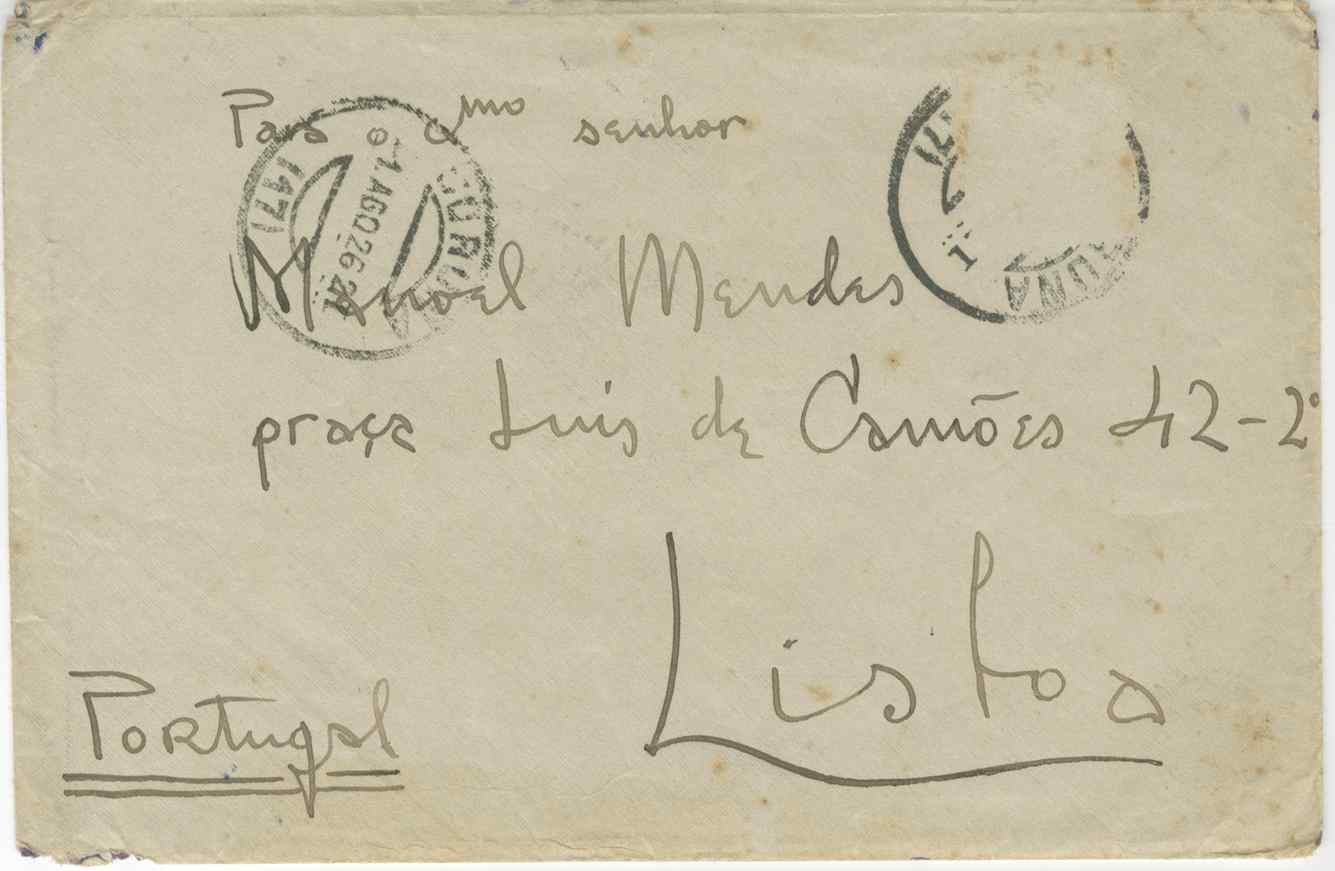 Para o mo senhor
Manoel Mendes
praça Luis de Camões 42-2º
Lisboa
Portugal
CORUÑA
1.AGO26.2
(47)
UÑA
1